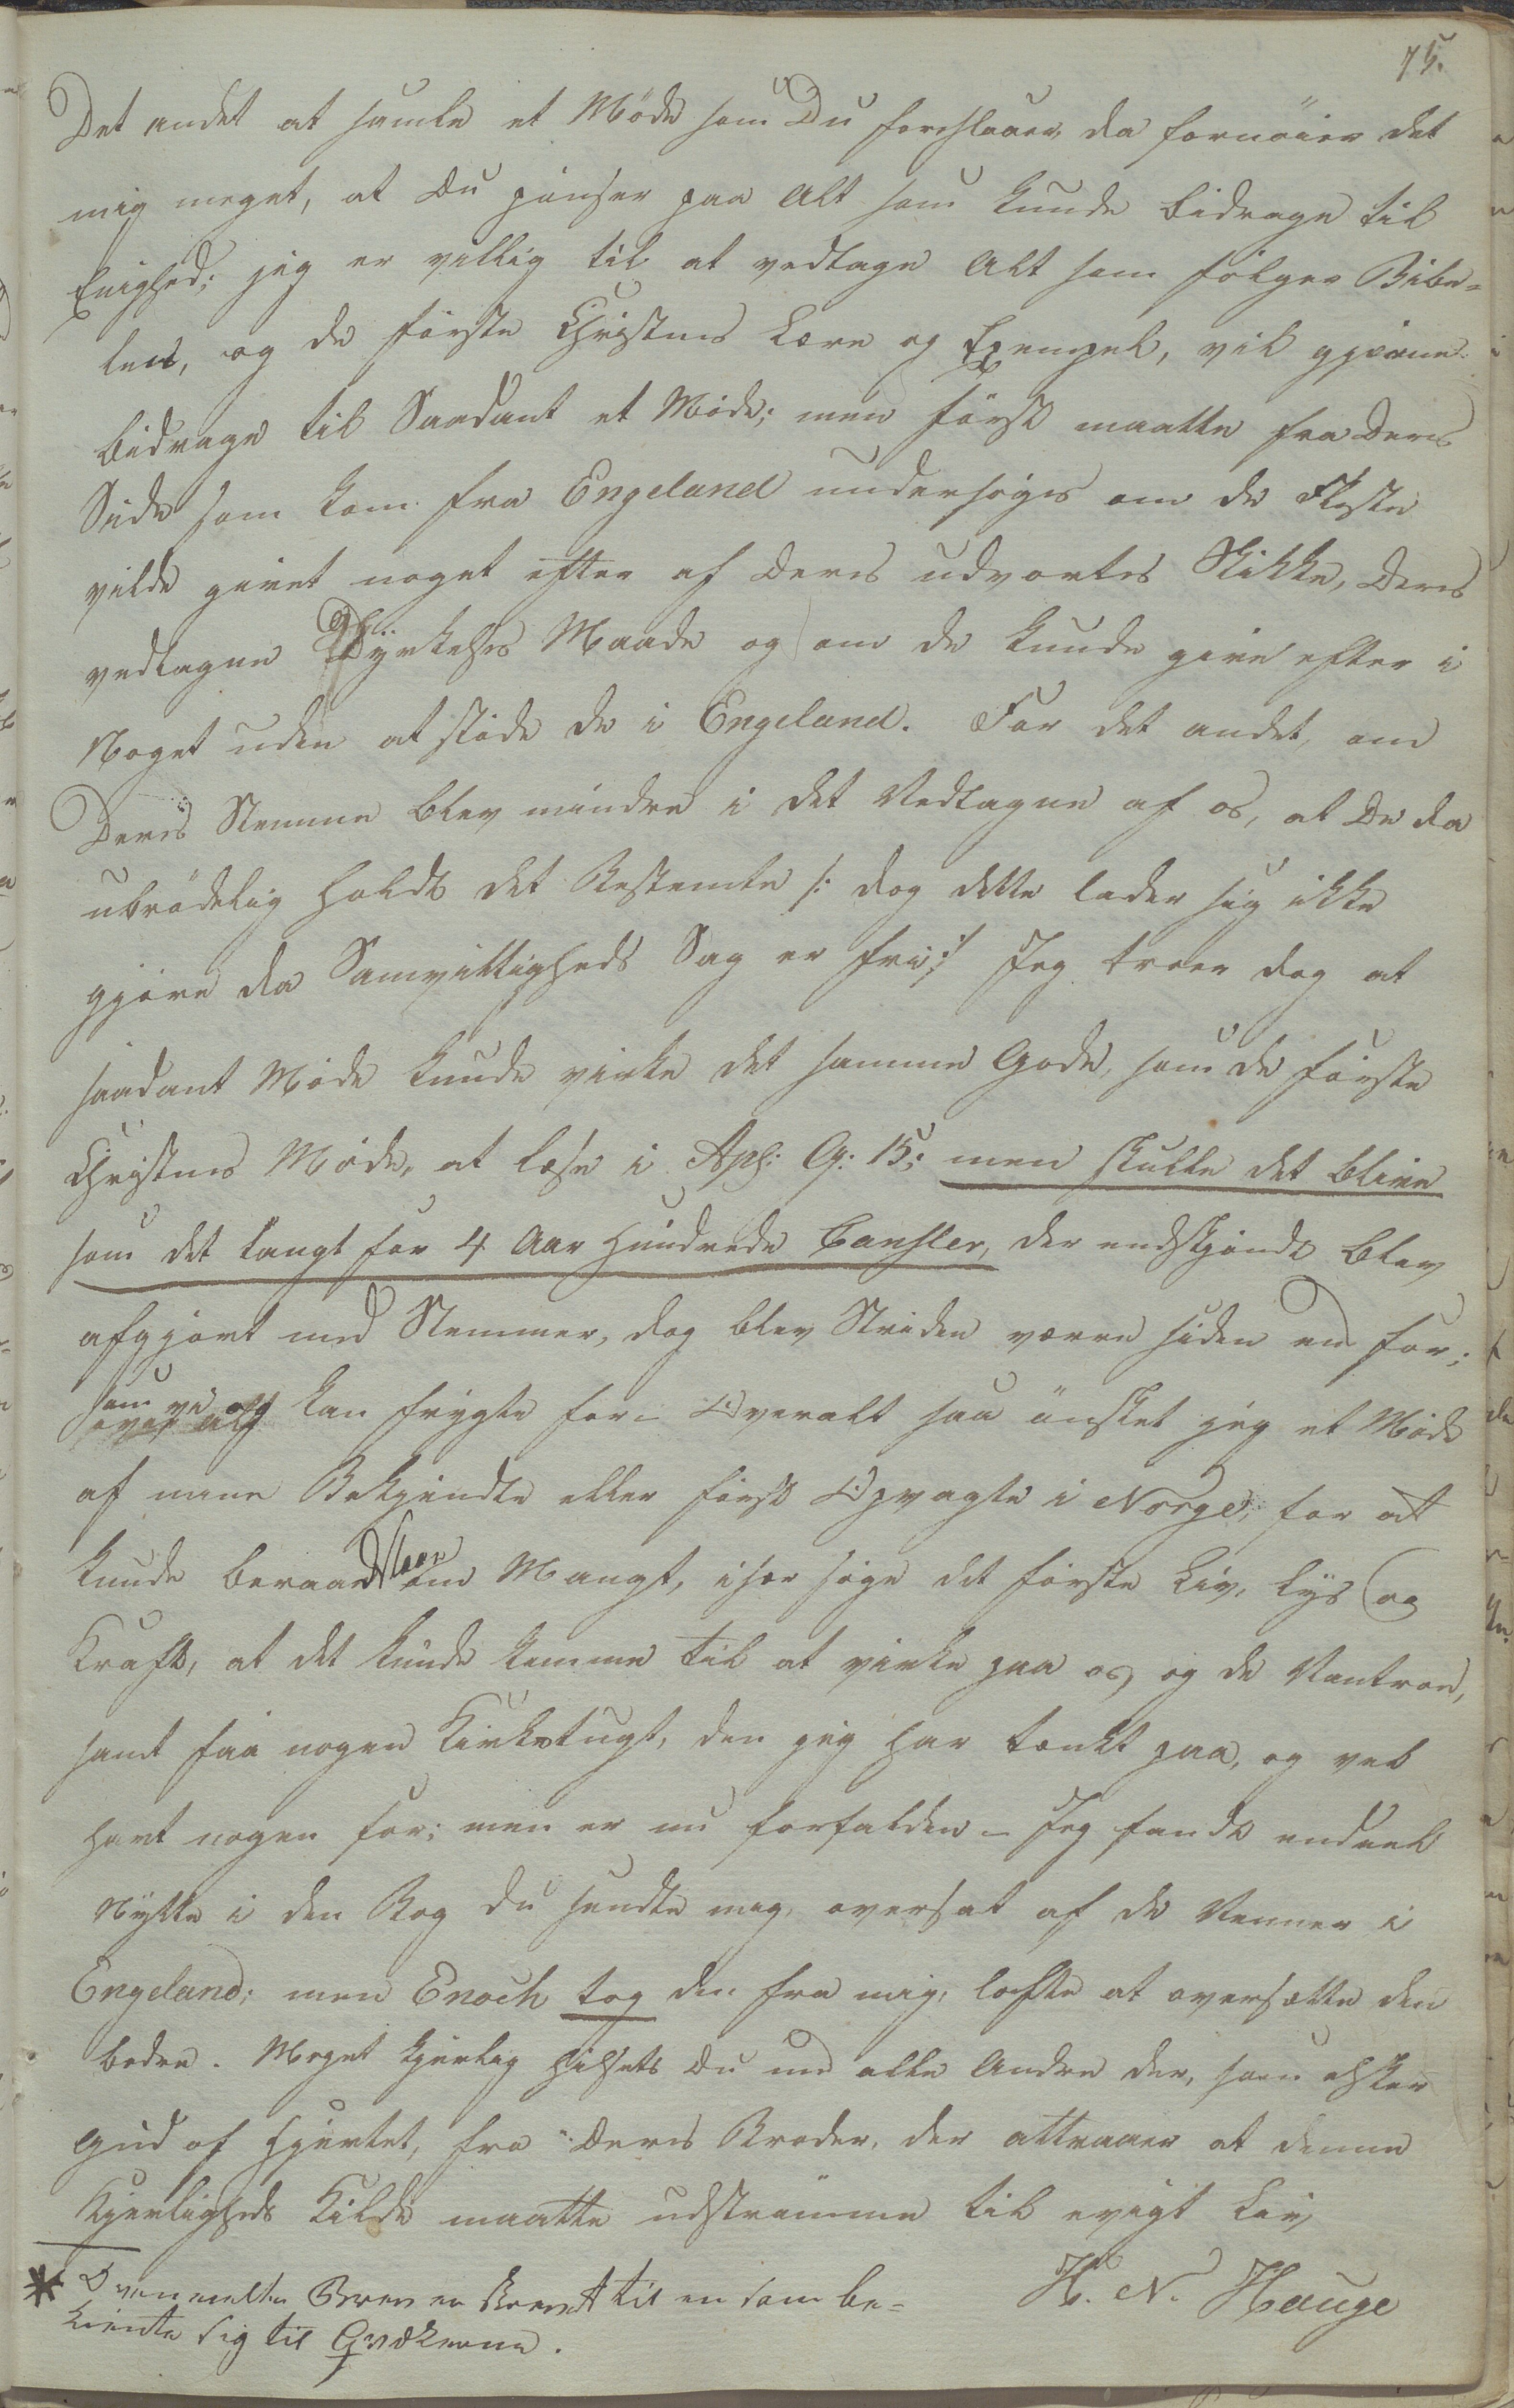 75.
Det andet at samle et Möde som Du foreslaaer, da fornöier det
mig meget, at Du pönser paa Alt som kunde bidrage til
Enighed; jeg er villig til at vedtage Alt som fölger Bibe=
len, og de förste Christnes Lære og Exempel, vil gjerne
bidrage til Saadant et Möde; men först maatte fra Deres
Side som kom fra Engeland undersöges om de Fleste
vilde givet noget efter af Deres udvortes Skikke, Deres
vedtagne Dyrkelses Maade og om de kunde give efter i
Noget uden at stöde de i Engeland. For det andet, om
Deres Stemme blev mindre i det Vedtagne af os, at De da
ubrödelig holdt det Bestemte /: dog dette lader sig ikke
gjöre da Samvittigheds Sag er fri :/ Jeg troer dog at
saadant Möde kunde virke det samme Gode, som de förste
Christnes Möde, at læse i Aps: G: 15; men skulle det blive
som det langt for 4 Aar hundrede Cansler, der endskjöndt blev
afgjort med Stemmer, dog blev Striden værre siden end för;
som vi og kan frygte for – Overalt saa önsket jeg et Möde
af mine Bekjendte eller först Opvagte i Norge, for at
kunde beraadslaae om Mangt, især söge det förste Liv, Lys og
Kraft, at det kunde komme til at virke paa os og de Vantroe,
samt faa nogen Kirketugt, den jeg har tænkt paa, og vel
havt nogen for; men er nu forfalden – Jeg fandt endeel
Nytte i den Bog du sendte mig, oversat af de Venner i
Engeland; men Enoch tog den fra mig, lofte at oversætte den
bedre. Meget kjerlig hilsets Du med alle Andre der, som elsker
Gud af Hjertet, fra Deres Broder, der attraaer at denne
Kjerligheds Kilde maatte udströmme til evigt Liv
H. N. Hauge
* Ovenmeldte Brev er skrevet til en som be=
kiente sig til Qvækerne.